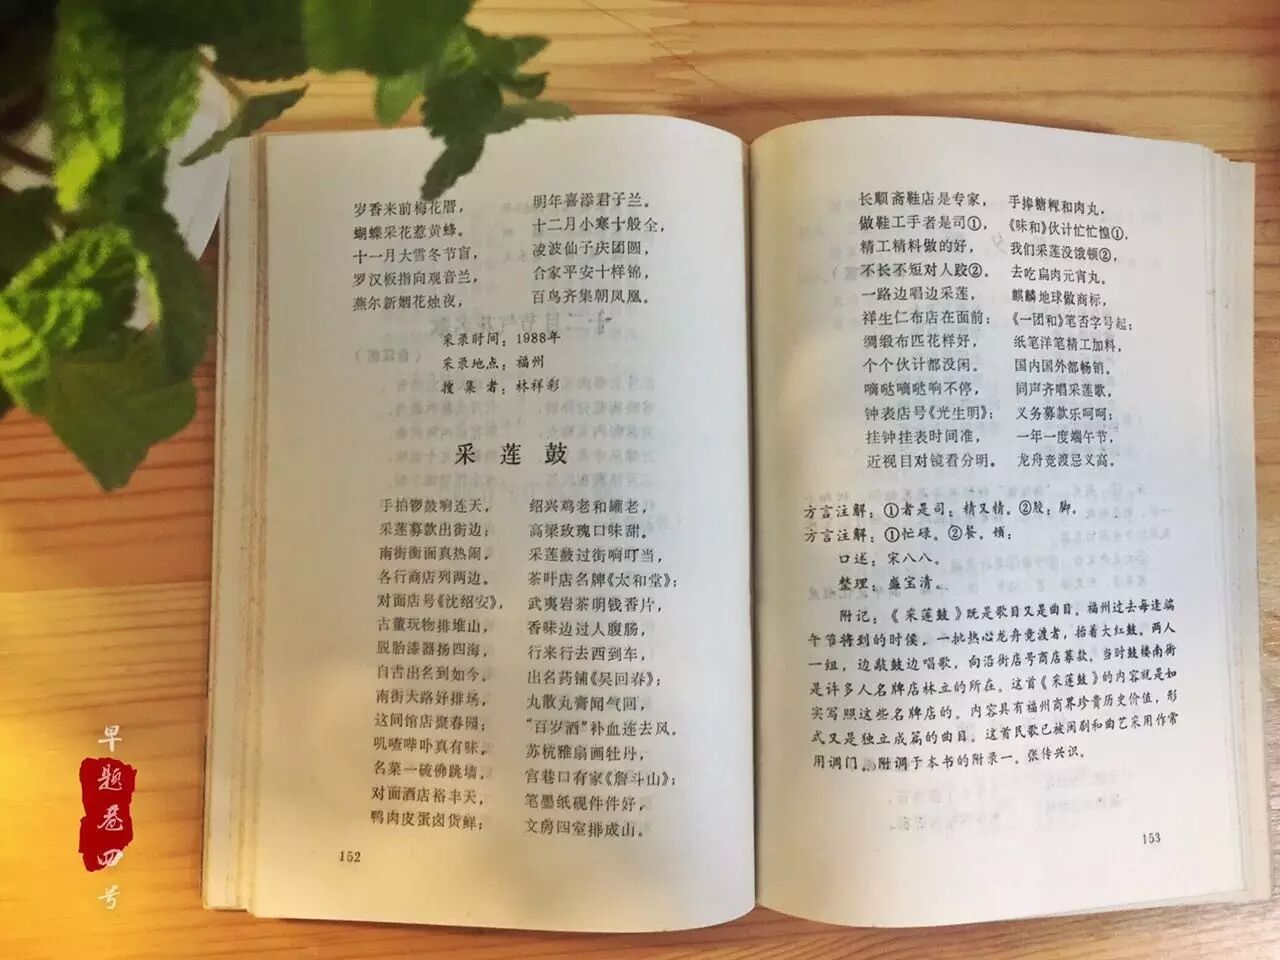 岁香来前梅花厝，
蝴蝶采花惹黄蜂。
十一月大雪冬节盲，
罗汉板指向观音兰，
燕尔新姻花烛夜，
明年喜添君子兰。
十二月小寒十般全，
凌波仙子庆团圆，
合家平安十样锦，
百鸟齐集朝凤凰。
采录时间：1988年
采录地点：福州
搜集者：林祥彩
采莲鼓
手拍锣鼓响连天，
采莲募款出街边；
南街衡面真热闹，
各行商店列两边。
对面店号《沈绍安》，
古董玩物排堆山，
脱胎漆器扬四海，
自古出名到如今。
南街大路好排场，
这间馆店聚春园；
叽喳哔卟真有味，
名菜一硫佛跳墙。
对面酒店裕丰天，
鸭肉皮蛋卤货鲜；
绍兴鸡老和罐老，
高梁玫瑰口味甜。
采莲鼓过街响叮当，
茶叶店名牌《太和堂》；
武夷岩茶明钱香片，
香味边过人腹肠，
行来行去西到车，
出名药铺《吴回春》；
丸散丸膏闻气回，
“百岁酒”补血连去风。
苏杭雅扇画牡丹，
宫巷口有家《詹斗山》；
笔墨纸砚件件好，
文房四室排成山。
152
长顺斋鞋店是专家，
做鞋工手者是司①，
精工精料做的好，
不长不短对人跤②。
一路边唱边采莲，
祥生仁布店在面前；
绸缎布匹花样好，
个个伙计都没闲。
嘀哒嘀哒响不停，
钟表店号《光生明》；
挂钟挂表时间准，
近视目对镜看分明。
手捧糖粿和肉丸，
《味和》伙计忙忙惶①，
我们采莲没饿顿②，
去吃扁肉元宵丸。
麒麟地球做商标，
《一团和》笔否字号起；
纸笔洋笔精工加料，
国内国外都畅销。
同声齐唱采莲歌，
义务募款乐呵呵；
一年一度端午节，
龙舟竞渡忌义高。
方言注解：①者是司：精又精。②胶：脚。
方言注解：①忙碌。②餐。顿；
口述：宋八八。
整理：盛宝清。
附记：《采莲鼓》既是歌目又是曲目。福州过去每逢端
午节将到的时候，一批热心龙舟竞渡者，抬着大红鼓。两人
一组，边敲鼓边唱歌，向沿街店号商店募款。当时鼓楼南街
是许多人名牌店林立的所在。这首《采莲鼓》的内容就是如
实写照这些名牌店的。内容具有福州商界珍贵历史价值，形
式又是独立成篇的曲目。这首民歌已被闽剧和曲艺采用作常
用调门。附调于本书的附录一。张传兴识。
153
早
题
巷
四
号